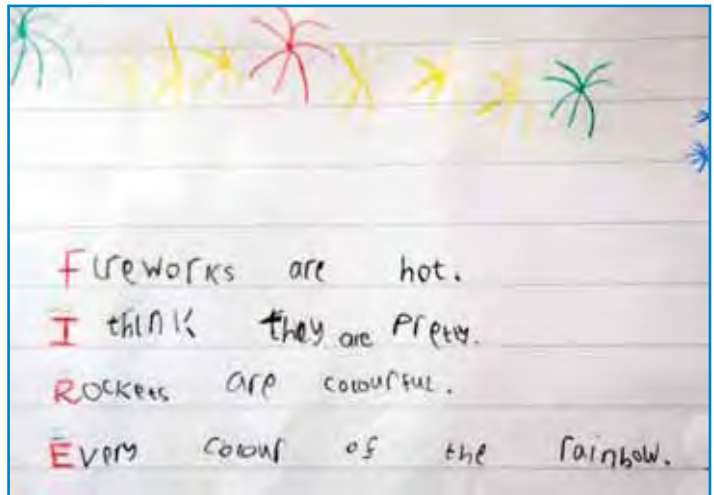 Fireworks are hot.
I think they are Prety.
Rockets are colourful.
Every colour of the rainbow.